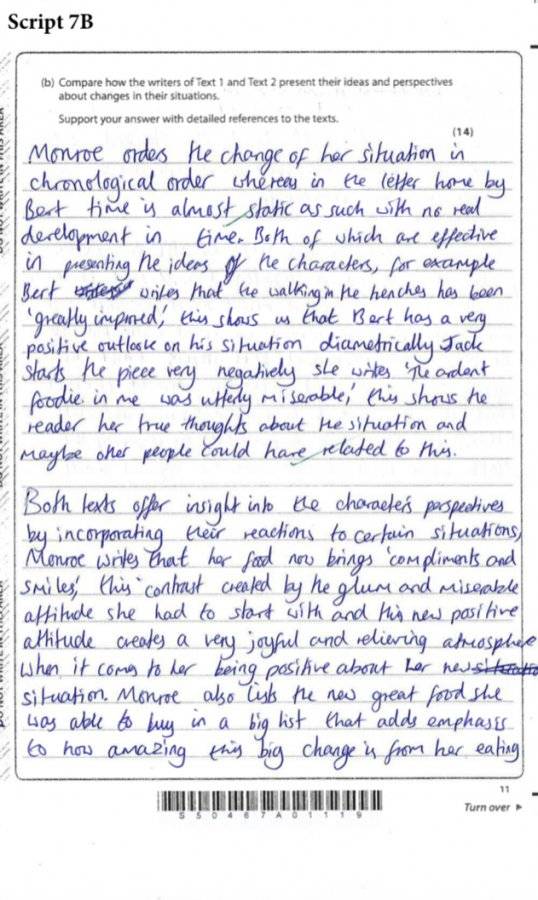 Script 7B
(b) Compare how the writers of Text 1 and Text 2 present their ideas and perspectives
about changes in their situations.
Support your answer with detailed references to the texts.
(14)
Monroe orders the change of her situation in
chronological order whereas in the letter home by
Bert time is almost static as such with no real
development in time. Both of which are effective
in presenting the ideas of the characters, for example
Bert writes that the walking in the trenches has been
'greatly improved,' this shows us that Bert has a very
positive outlook on his situation diametrically Jack
starts the piece very negatively she writes 'The ardent
foodie in me was utterly miserable,' this shows the
reader her true thoughts about the situation and
maybe other people could have related to this.
Both texts offer insight into the character's perspectives
by incorporating their reactions to certain situations,
Monroe writes that her food now brings 'compliments and
smiles,' this contrast created by the glum and miserable
attitude she had to start with and this new positive
attitude creates a very joyful and relieving atmosphere
when it comes to her being positive about her new
situation. Monroe also lists the new great food she
was able to buy in a big list that adds emphasis
to how amazing this big change is from her eating
S50467A01119
11
Turn over